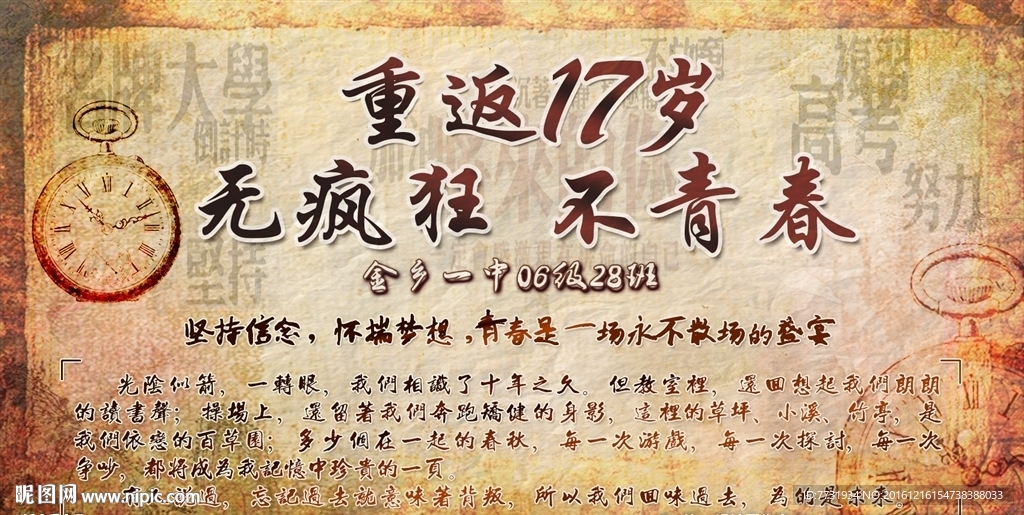 名牌大學
倒計時
坚持
高考
努力
重返17岁
无疯狂 不青春
金乡一中06级28班
坚持信念，怀揣梦想，青春是一场永不散场的盛宴
光陰似箭，一轉眼，我們相識了十年之久。但教室裡，還回想起我們朗朗
的讀書聲；操場上，還留著我們奔跑矯健的身影，這裡的草坪、小溪、竹亭，是
我們依戀的百草園；多少個在一起的春秋，每一次游戲，每一次探討，每一次
爭吵，都將成為我記憶中珍貴的一頁。
有人說過，忘記過去就意味著背叛，所以我們回味過去，為的是未來。
昵图网 www.nipic.com
ID:7731934 NO:20161216154738388033